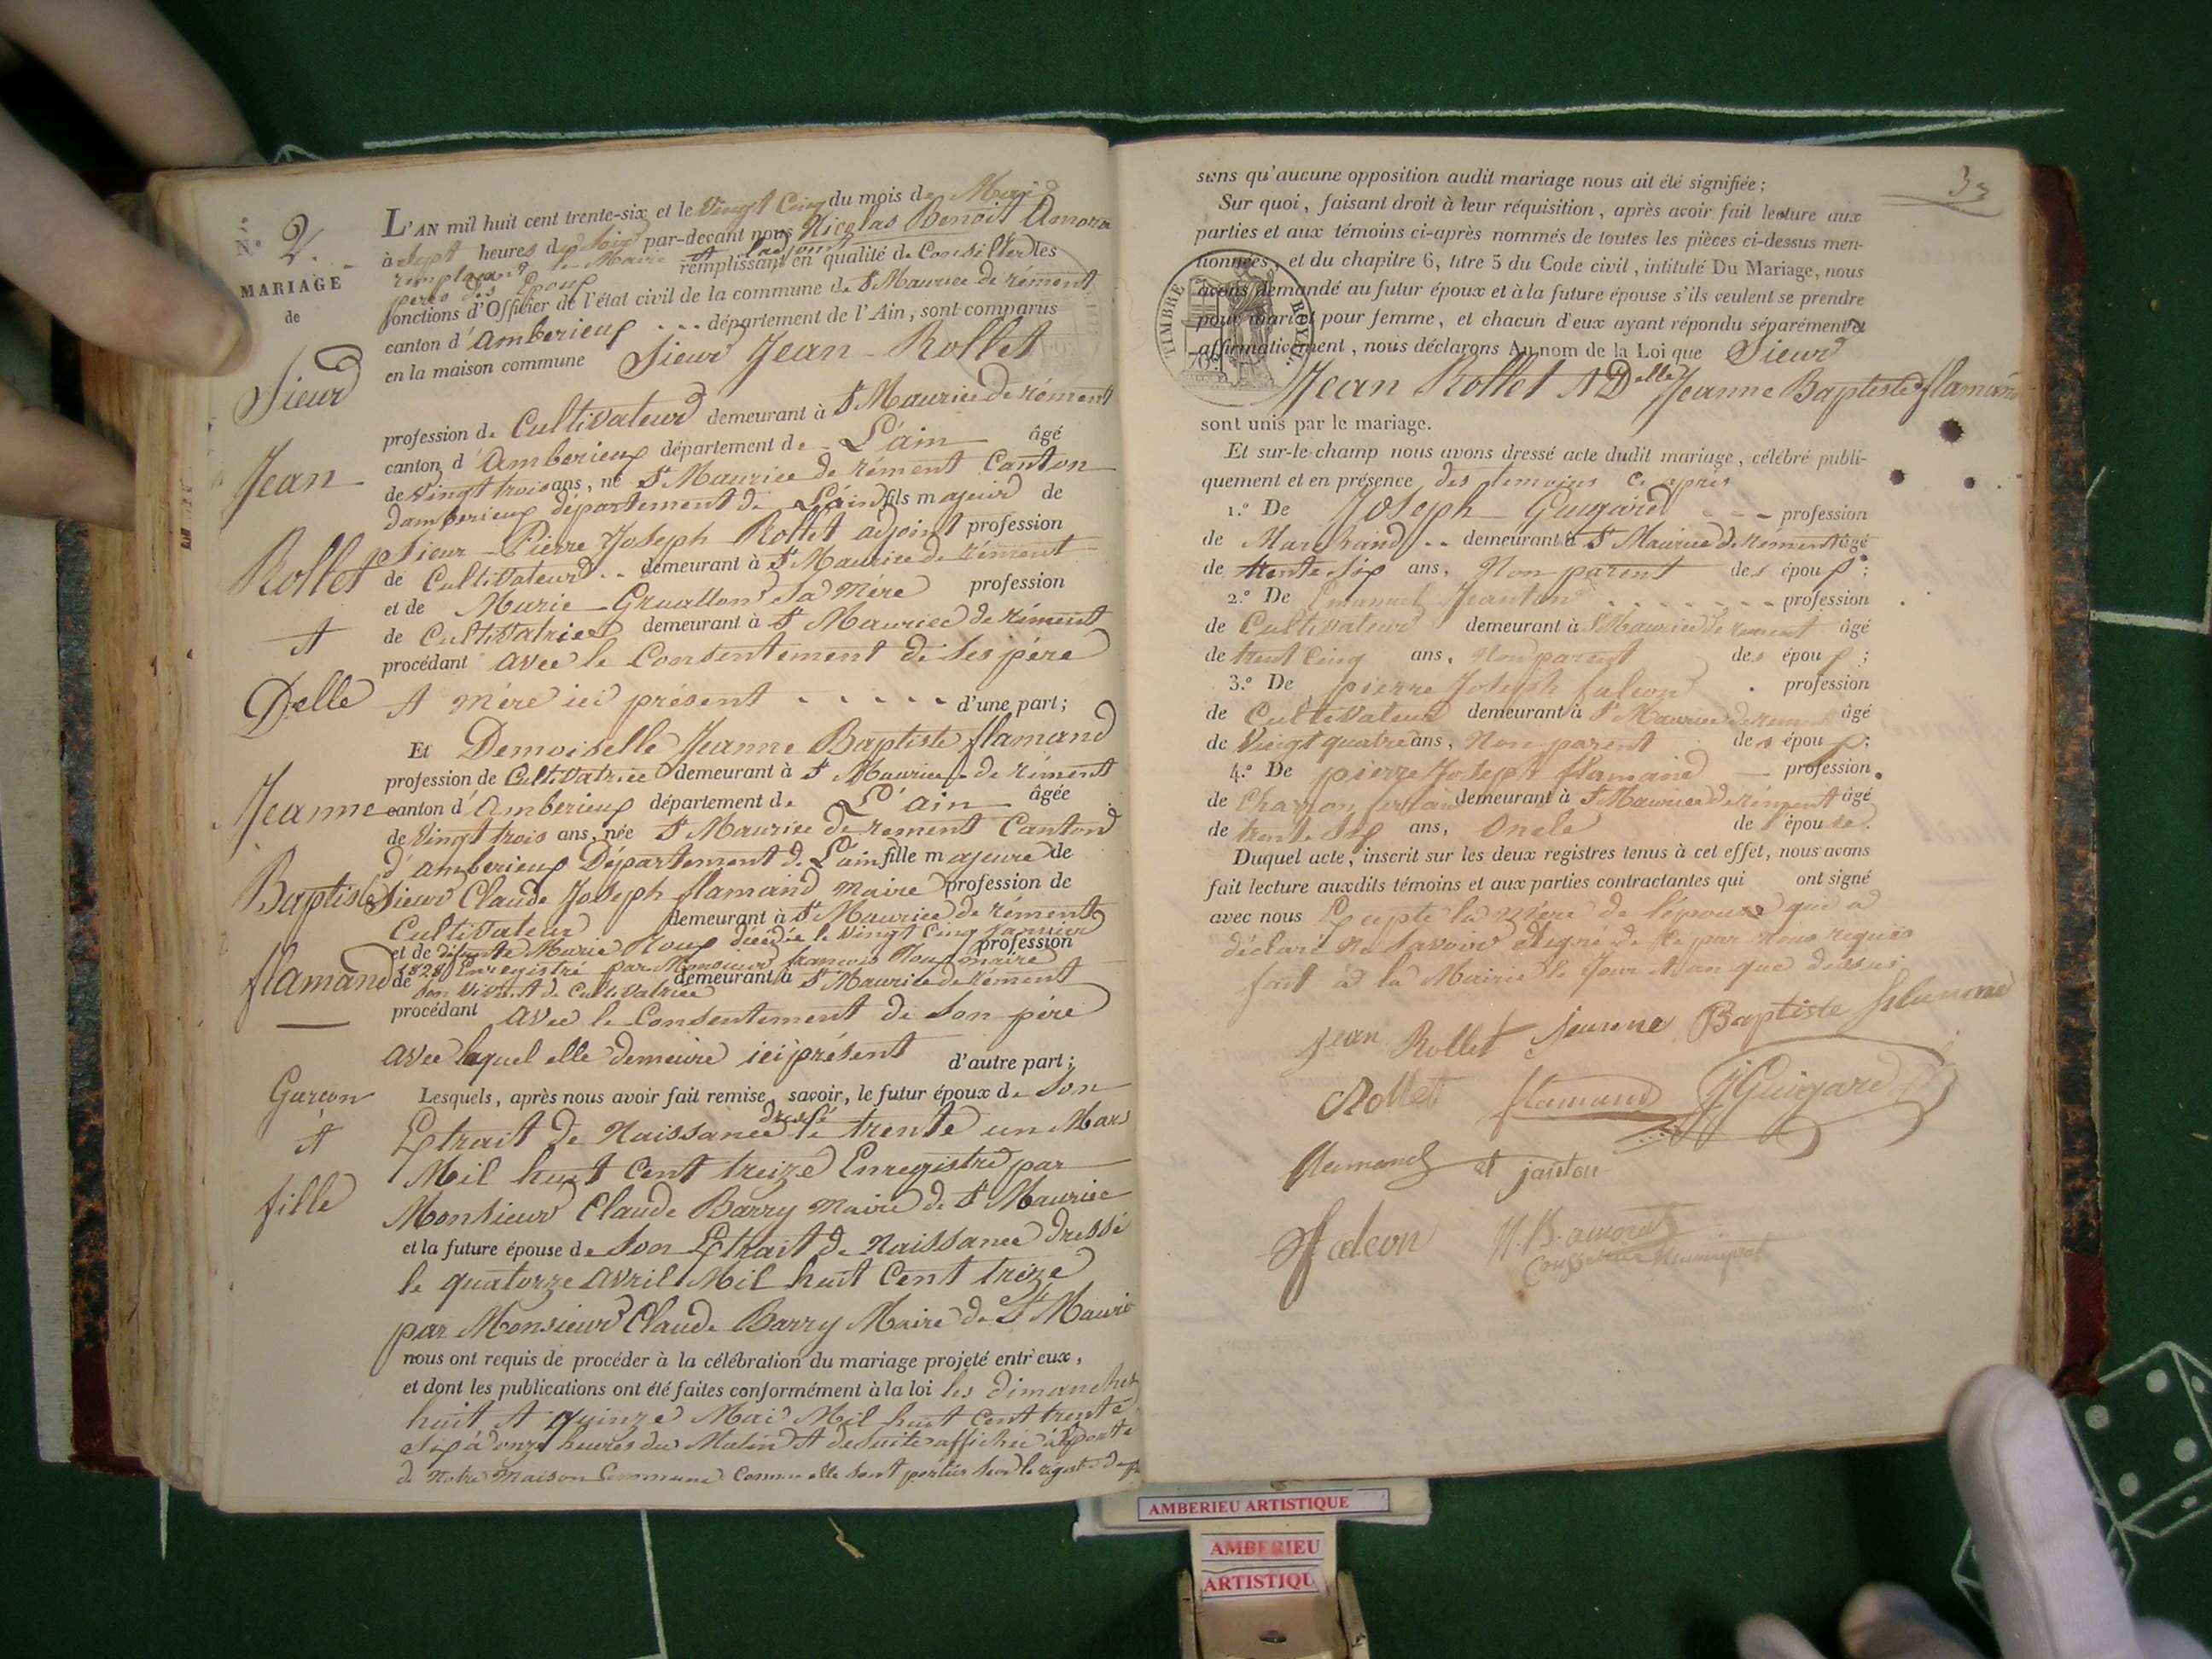 N.º 2.
MARIAGE
de
Sieur
Jean
Rollet
et
Delle
Jeanne
Baptiste
flamand
Garçon
et
fille
L'AN mil huit cent trente-six et le Vingt Cinq du mois de Mai
à Sept heures du Soir par-devant nous Nicolas Benoit Amora
remplaçant le Maire et l'adjoint remplissant en qualité de Conseiller les
peres des Epoux
fonctions d'Officier de l'état civil de la commune de St Maurice de rément
canton d'Amberieux département de l'Ain, sont comparus
en la maison commune Sieur Jean Rollet
profession de Cultivateur demeurant à St Maurice de rément
canton d'Amberieux département de L'ain âgé
de Vingt trois ans, né St Maurice de rément Canton
d'amberieux département de L'ain fils majeur de
Sieur Pierre Joseph Rollet adjoint profession
de Cultivateur demeurant à St Maurice de rément
et de Marie Gruallon Sa Mère profession
de Cultivatrice demeurant à St Maurice de rément
procédant avec le Consentement de Ses père
et mère ici présent d'une part;
Et Demoiselle Jeanne Baptiste flamand
profession de Cultivatrice demeurant à St Maurice de rément
canton d'Amberieux département de L'ain âgée
de Vingt trois ans, née St Maurice de rement Canton
d'amberieux Département de L'ain fille majeure de
Sieur Claude Joseph flamand maire profession de
Cultivateur demeurant à St Maurice de rément
et de défunte Marie Roux décédée le Vingt Cinq Janvier profession
1828 Enregistré par Monsieur francois Roux maire
de Son Vivant de Cultivatrice demeurant à St Maurice de rément
procédant avec le Consentement de Son père
avec lequel elle demeure ici présent d'autre part;
Lesquels, après nous avoir fait remise, savoir, le futur époux de Son
Extrait de Naissance dressé le trente un Mars
Mil huit Cent treize Enregistré par
Monsieur Claude Barry Maire de St Maurice
et la future épouse de Son Extrait de Naissance Dressé
le quatorze Avril Mil huit Cent treize
par Monsieur Claude Barry Maire de St Mauri
nous ont requis de procéder à la célébration du mariage projeté entr'eux,
et dont les publications ont été faites conformément à la loi les dimanches
huit et quinze Mai Mil huit Cent trente
Six à onze heures du Matin et de Suite affichée à la porte
de Notre Maison Commune Comme elle sont portées Sur le
3
sans qu'aucune opposition audit mariage nous ait été signifiée;
Sur quoi, faisant droit à leur réquisition, après avoir fait lecture aux
parties et aux témoins ci-après nommés de toutes les pièces ci-dessus men-
tionnées, et du chapitre 6, titre 5 du Code civil, intitulé Du Mariage, nous
avons demandé au futur époux et à la future épouse s'ils veulent se prendre
pour mari et pour femme, et chacun d'eux ayant répondu séparément et
affirmativement, nous déclarons Au nom de la Loi que Sieur
Jean Rollet et Delle Jeanne Baptiste flamand
sont unis par le mariage.
TIMBRE ROYAL
Et sur-le-champ nous avons dressé acte dudit mariage, célébré publi-
quement et en présence des temoins Ci après
1.º De Joseph Guigard profession
de Marchand demeurant à St Maurice de rément âgé
de trente Six ans, Non parent des époux;
2.º De Emanuel Jeanton profession
de Cultivateur demeurant à St Maurice de rement âgé
de trent Cinq ans, Non parent des époux;
3.º De pierre Joseph falcon profession
de Cultivateur demeurant à St Maurice de rément âgé
de Vieigt quatre ans, Non parent des époux;
4.º De pierre Joseph flamand profession
de Charron demeurant à St Maurice de rément âgé
de trente Six ans, Oncle de l'épouse.
Duquel acte, inscrit sur les deux registres tenus à cet effet, nous avons
fait lecture auxdits témoins et aux parties contractantes qui ont signé
avec nous Excepte la Mère de l'époux qui a
déclaré Ne Savoir Signé de Ce par Nous requis
fait à la Mairie le Jour et an que dessus
jean Rollet jeanne Baptiste flamand
Rollet flamand J Guigard
flamand et janton
falcon N. B. amora
Conseiller Municipal
AMBERIEU ARTISTIQUE
AMBERIEU
ARTISTIQU